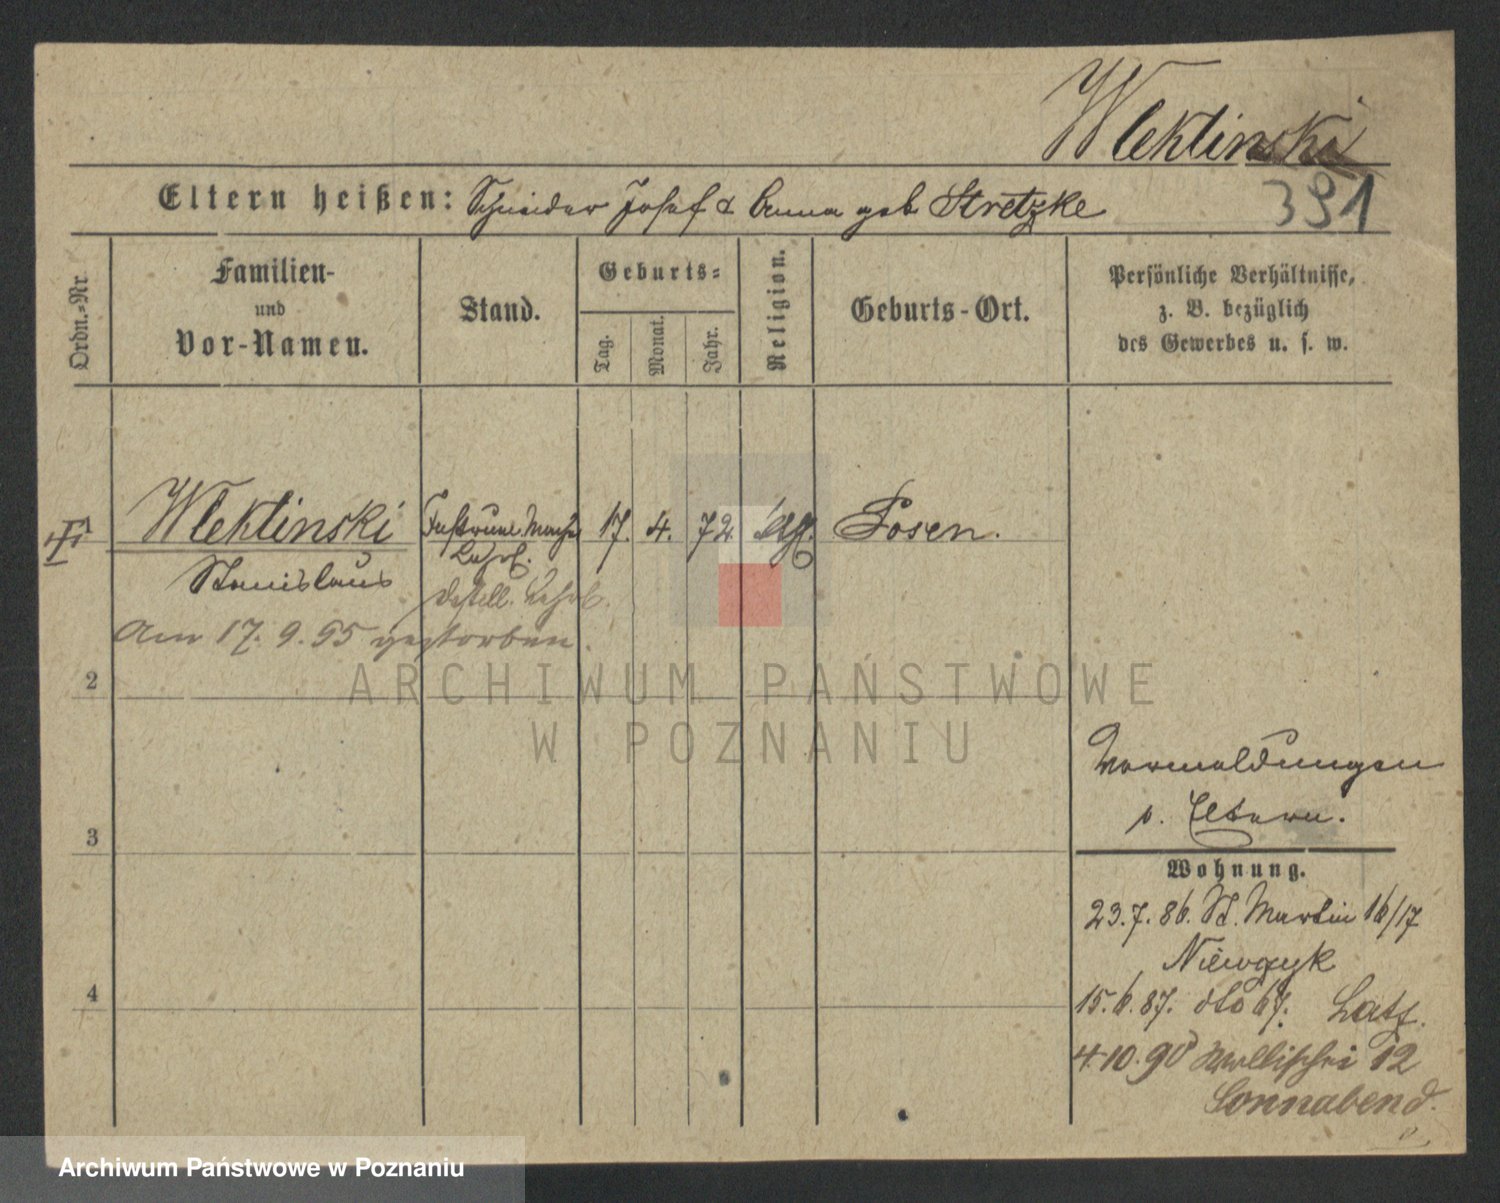 Wlektinski
391
Eltern heißen: Schneider Josef & Anna geb Stretzke
Ordn.-Nr.
Familien-
und
Vor-Namen.
Stand.
Geburts-
Tag.
Monat.
Jahr.
Religion.
Geburts-Ort.
Persönliche Verhältnisse,
z. B. bezüglich
des Gewerbes u. s. w.
1 Wlektinski 17. 4. 72 Posen.
Stanislaus Lehrl.
Destill. Lehrl.
Am 17. 9. 95 gestorben.
2
3
4
ARCHIWUM PAŃSTWOWE
W POZNANIU
Vermeldungen
v. Eltern.
Wohnung.
23.7.86. St. Martin 16/17
15.6.87. dto 67.
4.10.90 Wallischei 12
Sonnabend.
Archiwum Państwowe w Poznaniu